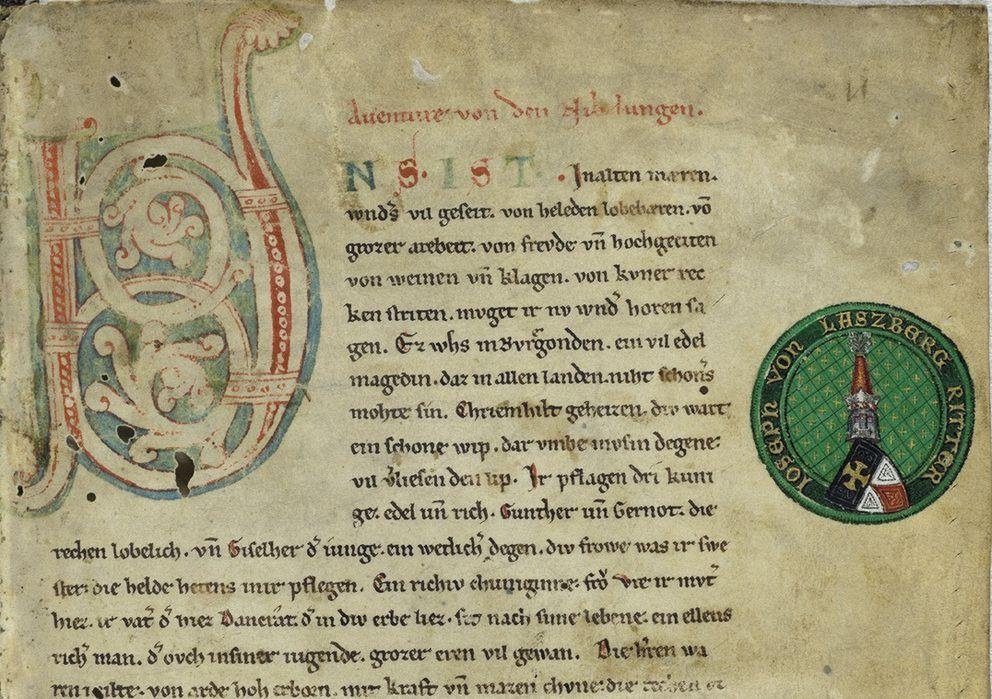 Auenture von den Nibelungen.
VNS. IST. In alten mæren.
wnd̾s vil geseit. von heleden lobebæren. vō
grozer arebeit. von frevde vn̄ hochgeciten
von weinen vn̄ klagen. von kvner rec
ken striten. mvget ir nv wnd̾ horen sa
gen. Ez whs in Bvrgonden. ein vil edel
magedin. daz in allen landen. niht schon̾s
mohte sin. Chriemhilt geheizen. div wart
ein schone wip. dar vmbe mvsin degene
vil v̾liesen den lip. Ir pflagen dri kuni
ge. edel vn̄ rich. Gunther vn̄ Gernot. die
rechen lobelich. vn̄ Giselher d̾ iunge. ein wetlich̾ degen. div frowe was ir swe
ster. die helde hetens inir pflegen. Ein richiv chuniginne. fro Vte ir mvt̾
hiez. ir vat̾ d̾ hiez Dancrat. d̾ in div erbe liez. sit nach sime lebene. ein ellens
rich̾ man. d̾ ovch in siner iugende. grozer eren vil gewan. Die h̾ren wa
ren milte. von arde hoh erborn. mit kraft vn̄ mazen chvne. die rechen
IOSEPH VON LASZBERG RITTER